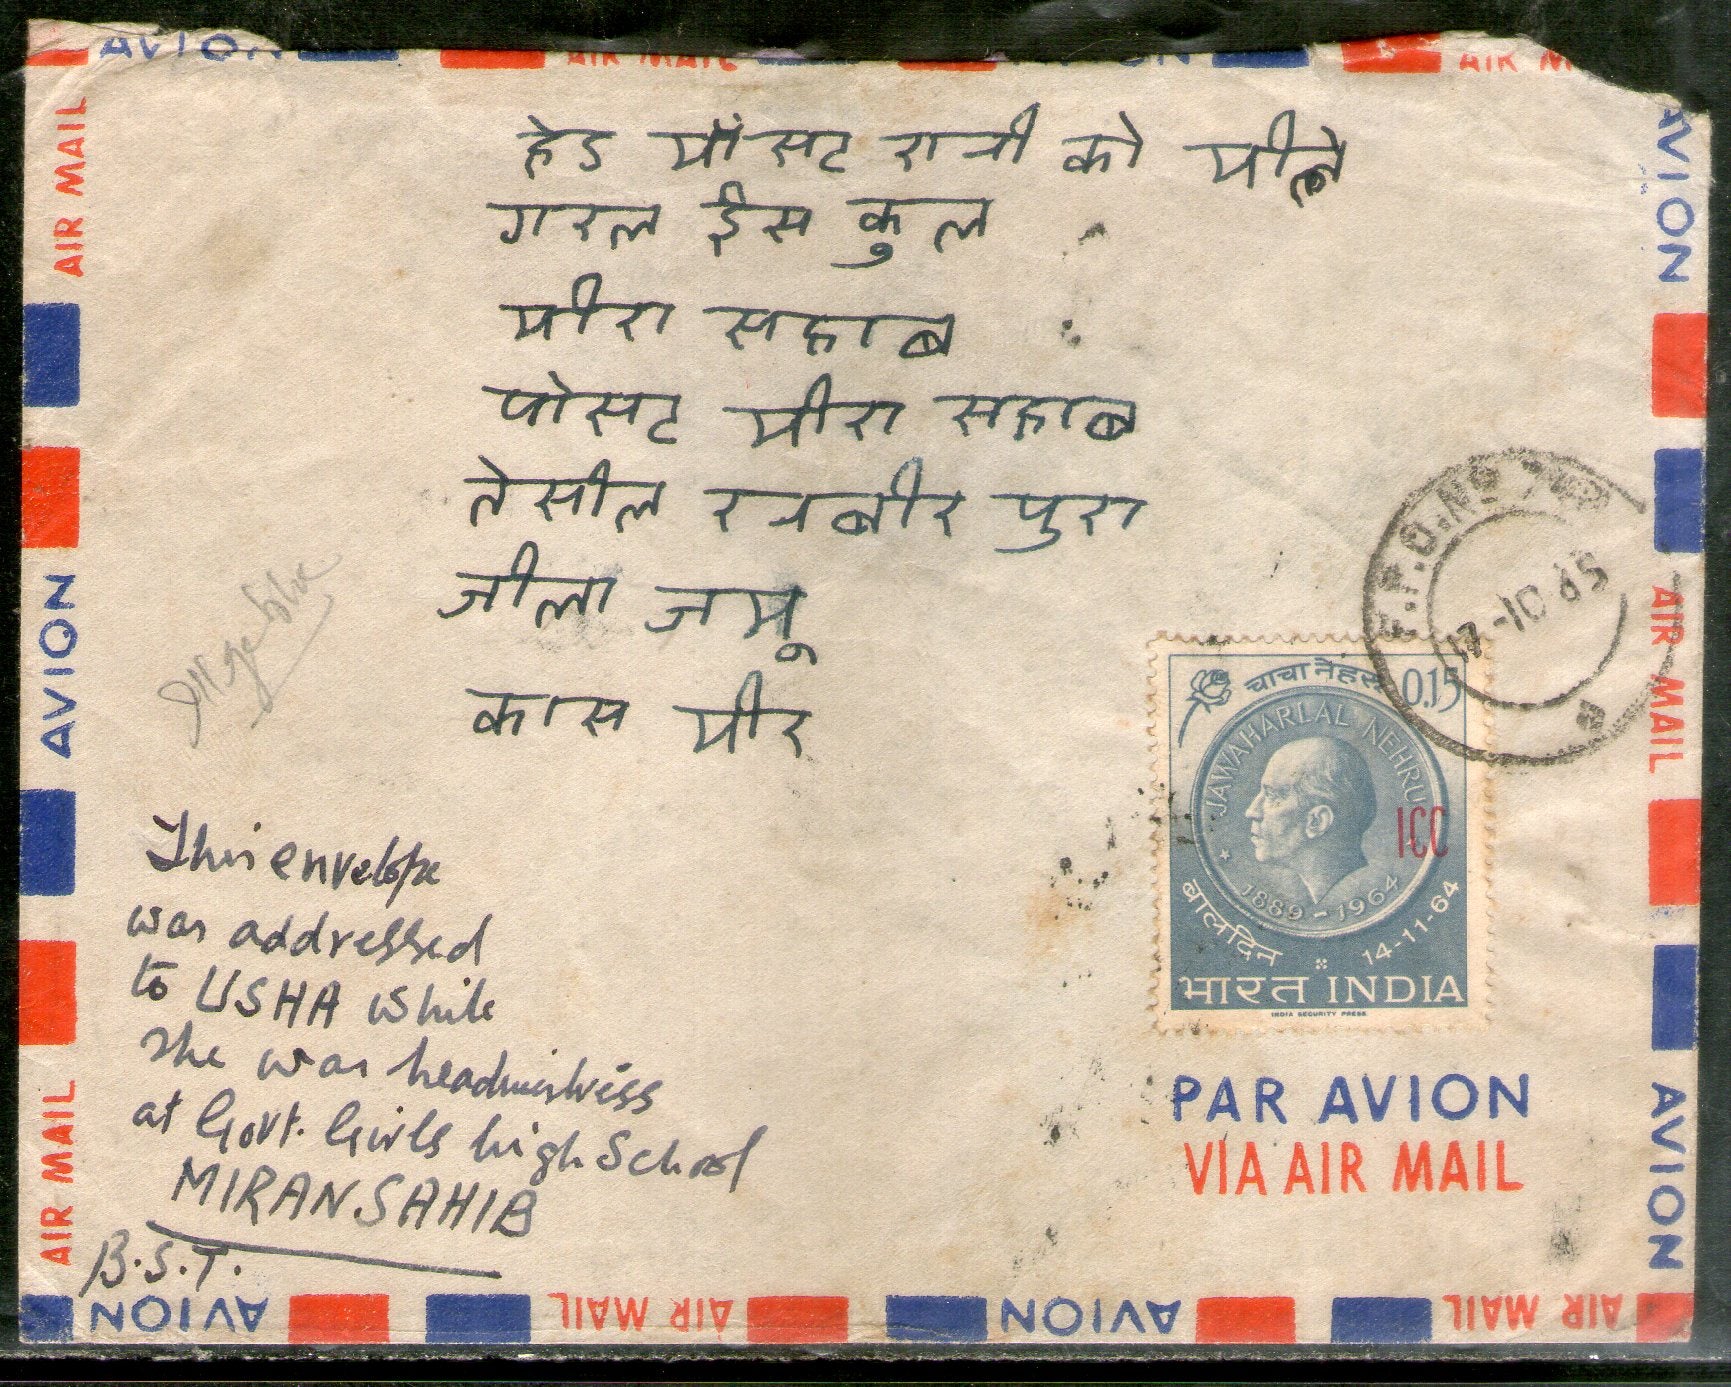 हेड मॉसट रानी को मीले
गरल ईस कुल
मीरा सहाब
पोसट मीरा सहाब
तेसील रनबीर पुरा
जीला जमू
कास मीर
This envelope
was addressed
to USHA while
she was headmistress
at Govt. Girls high School
MIRANSAHIB
B.S.T.
F.P.O. No
17-10 65
चाचा नेहरू 0.15
JAWAHARLAL NEHRU
ICC
1889-1964
बालदिन 14-11-64
भारत INDIA
INDIA SECURITY PRESS
PAR AVION
VIA AIR MAIL
AVION
AIR MAIL
AIR
AIR MAIL
AVION
AIR MAIL
AVION
AIR MAIL
AVION
AVION
AIR MAIL
AVION
AIR MAIL